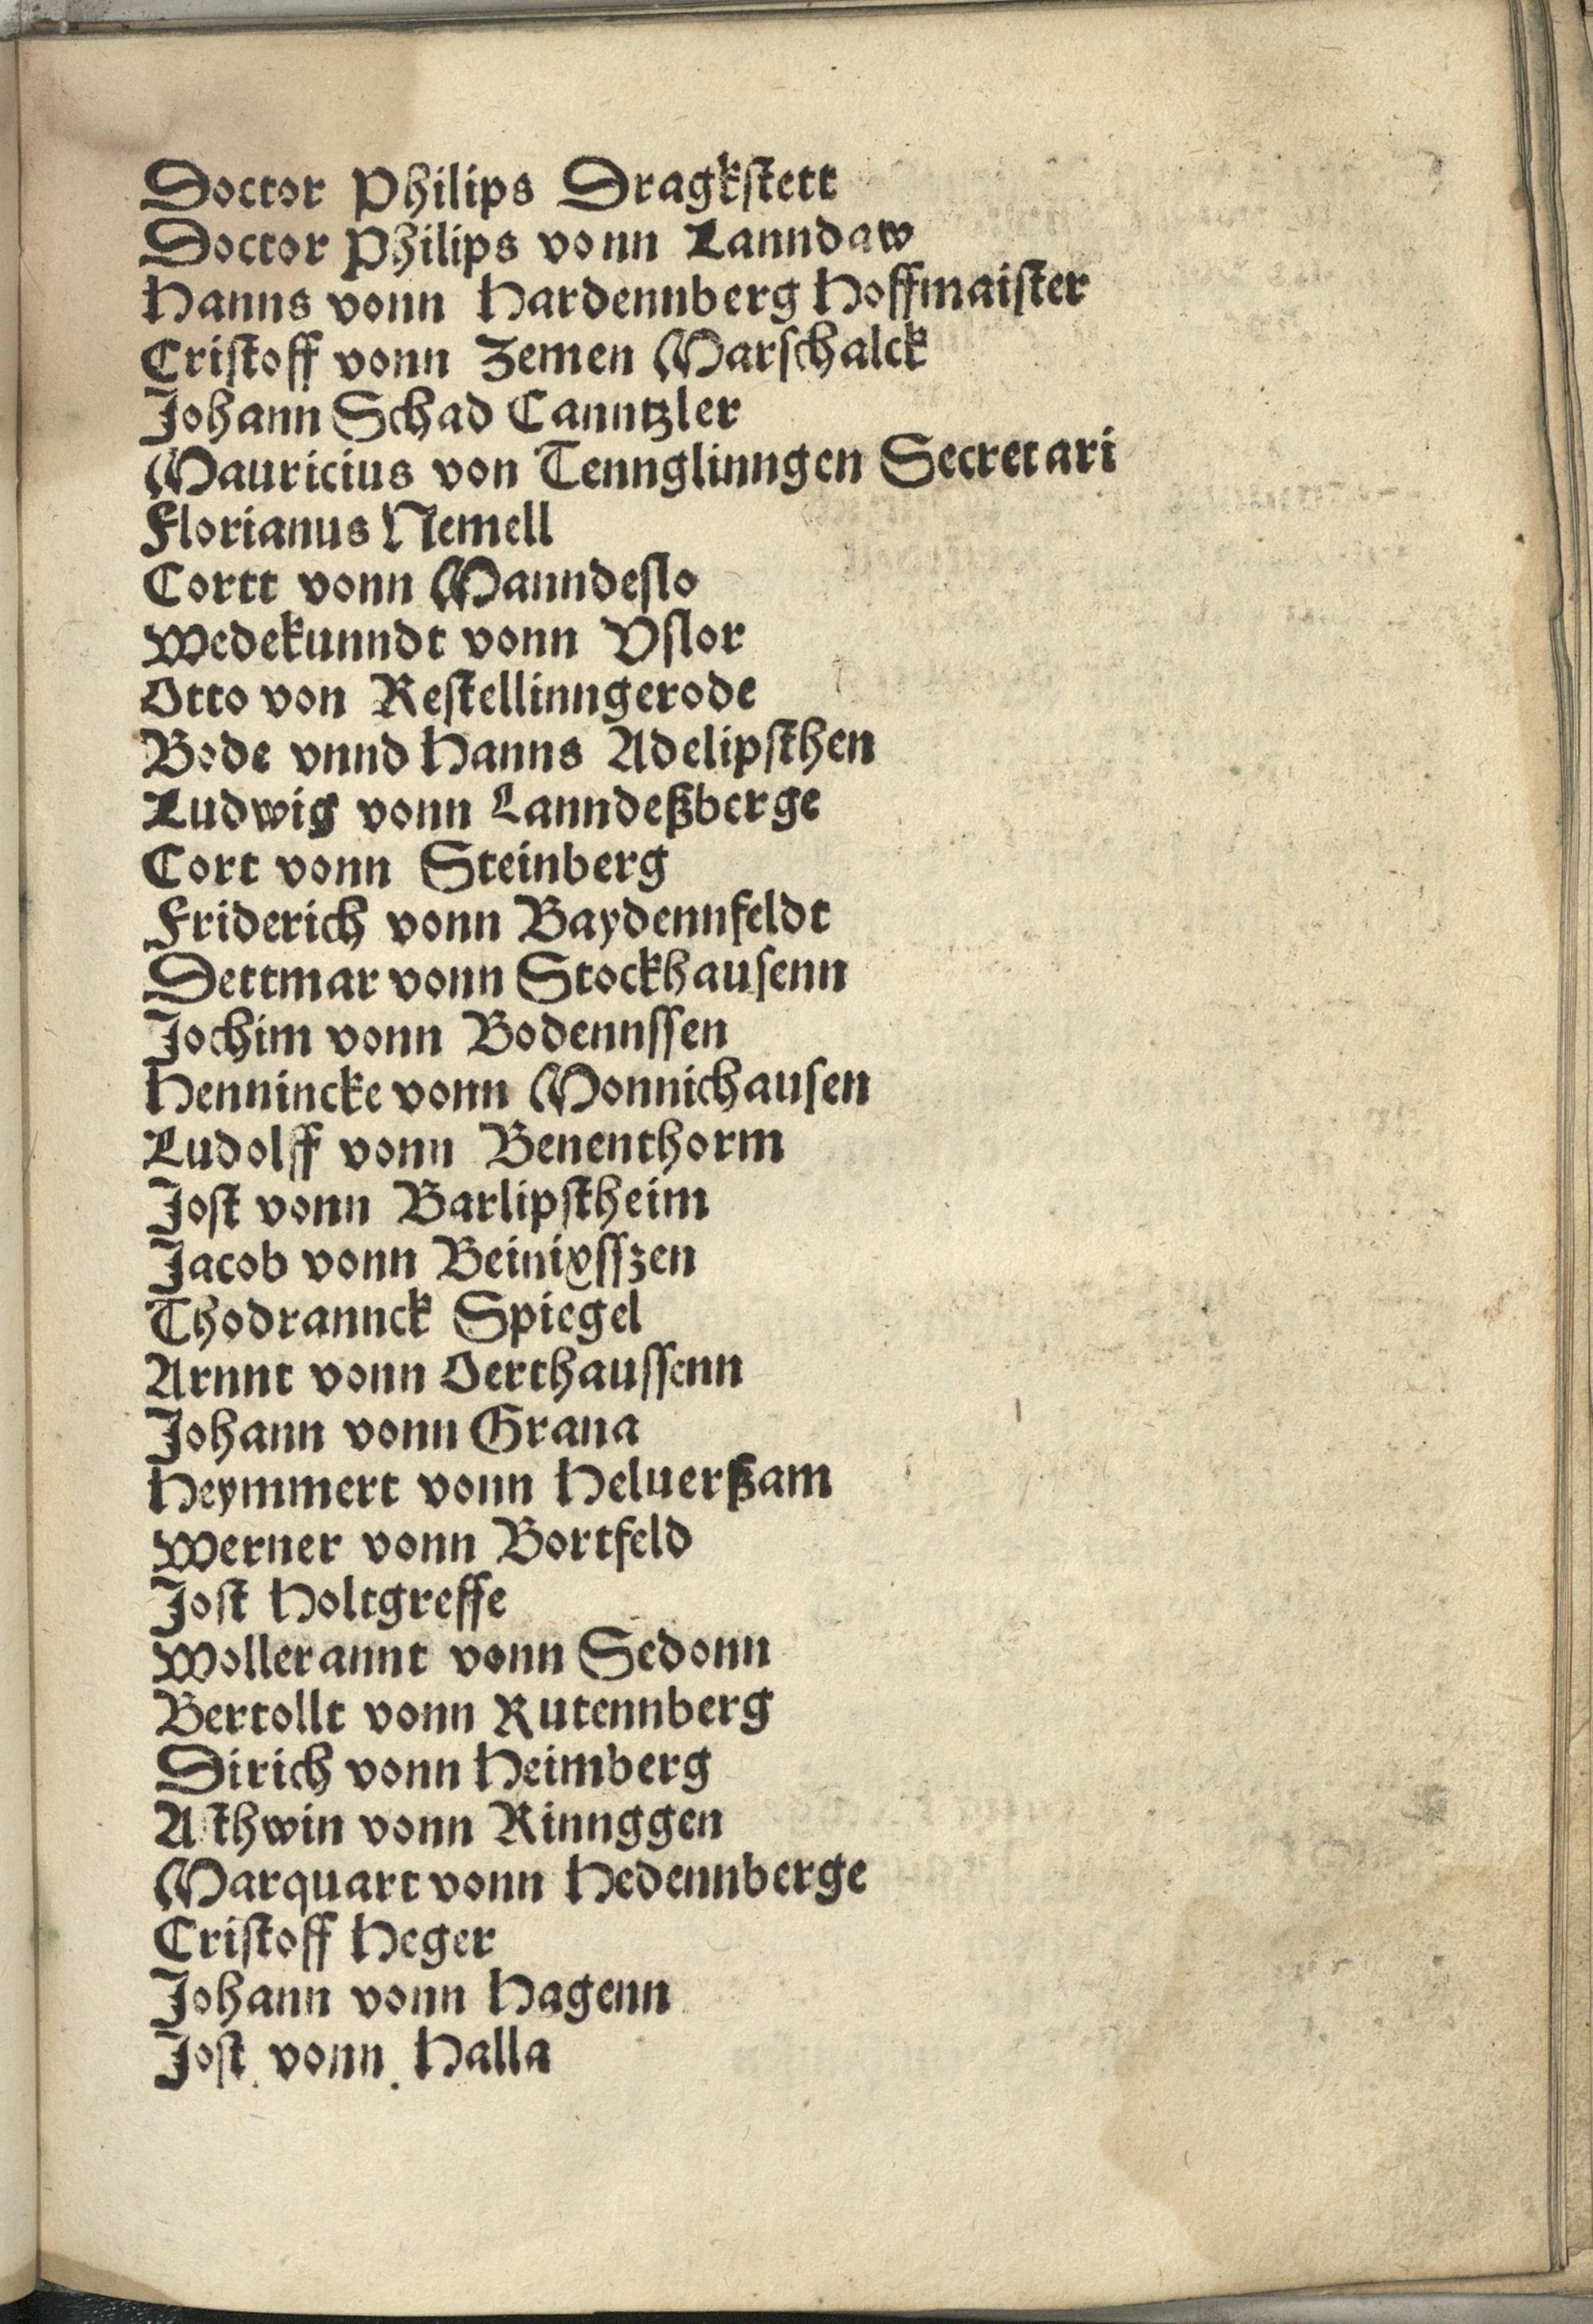 Doctor Philips Dragkſtett
Doctor Philips vonn Lanndaw
Hanns vonn Hardennberg Hoffmaiſter
Criſtoff vonn Zemen Marſchalck
Johann Schad Canntzler
Mauricius von Tennglinngen Secretari
Florianus Nemell
Cortt vonn Manndeſlo
Wedekunndt vonn Vſlor
Otto von Reſtellinngerode
Bode vnnd Hanns Adelipſthen
Ludwig vonn Lanndeßberge
Cort vonn Steinberg
Friderich vonn Baydennfeldt
Dettmar vonn Stockhauſenn
Jochim vonn Bodennſſen
Hennincke vonn Monnichauſen
Ludolff vonn Benenthorm
Joſt vonn Barlipſtheim
Jacob vonn Beinixſſzen
Thodrannck Spiegel
Arnnt vonn Oerthauſſenn
Johann vonn Grana
Heymmert vonn Heluerßam
Werner vonn Bortfeld
Joſt Holtgreffe
Wollerannt vonn Sedonn
Bertollt vonn Rutennberg
Dirich vonn Heimberg
Aſthwin vonn Rinnggen
Marquart vonn Hedennberge
Criſtoff Heger
Johann vonn Hagenn
Joſt vonn Halla